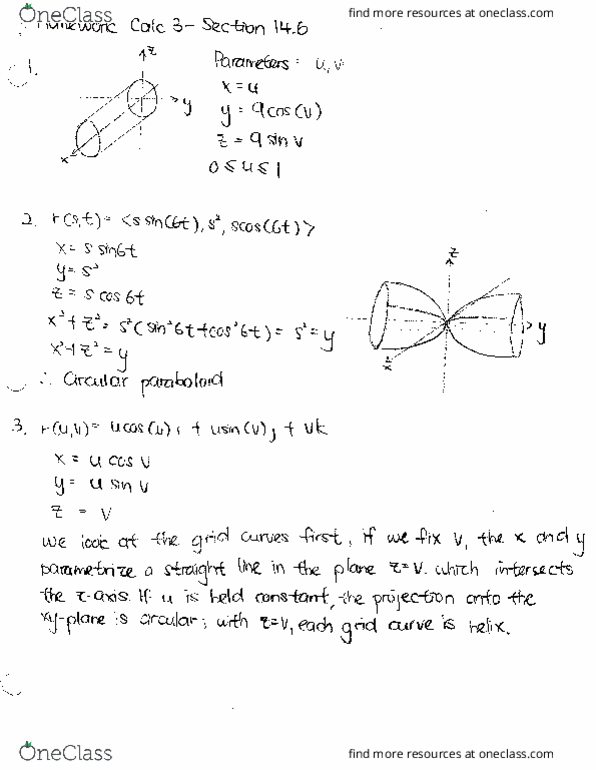 OneClass
find more resources at oneclass.com
Homework Calc 3- Section 14.6
1.
z
y
x
Parameters: u, v
x = u
y = 9cos(v)
z = 9 sin v
0 ≤ u ≤ 1
2. r(s,t) = <s sin(6t), s², scos(6t)>
x = s sin6t
y = s²
z = s cos 6t
x² + z² = s²(sin²6t+cos²6t) = s² = y
x²+z² = y
∴ Circular paraboloid
z
y
x
3. r(u,v) = ucos(u)i + usin(v)j + vk
x = u cos v
y = u sin v
z = v
we look at the grid curves first, if we fix v, the x and y
parametrize a straight line in the plane z=v. which intersects
the z-axis. If u is held constant, the projection onto the
xy-plane is circular; with z=v, each grid curve is helix.
OneClass
find more resources at oneclass.com